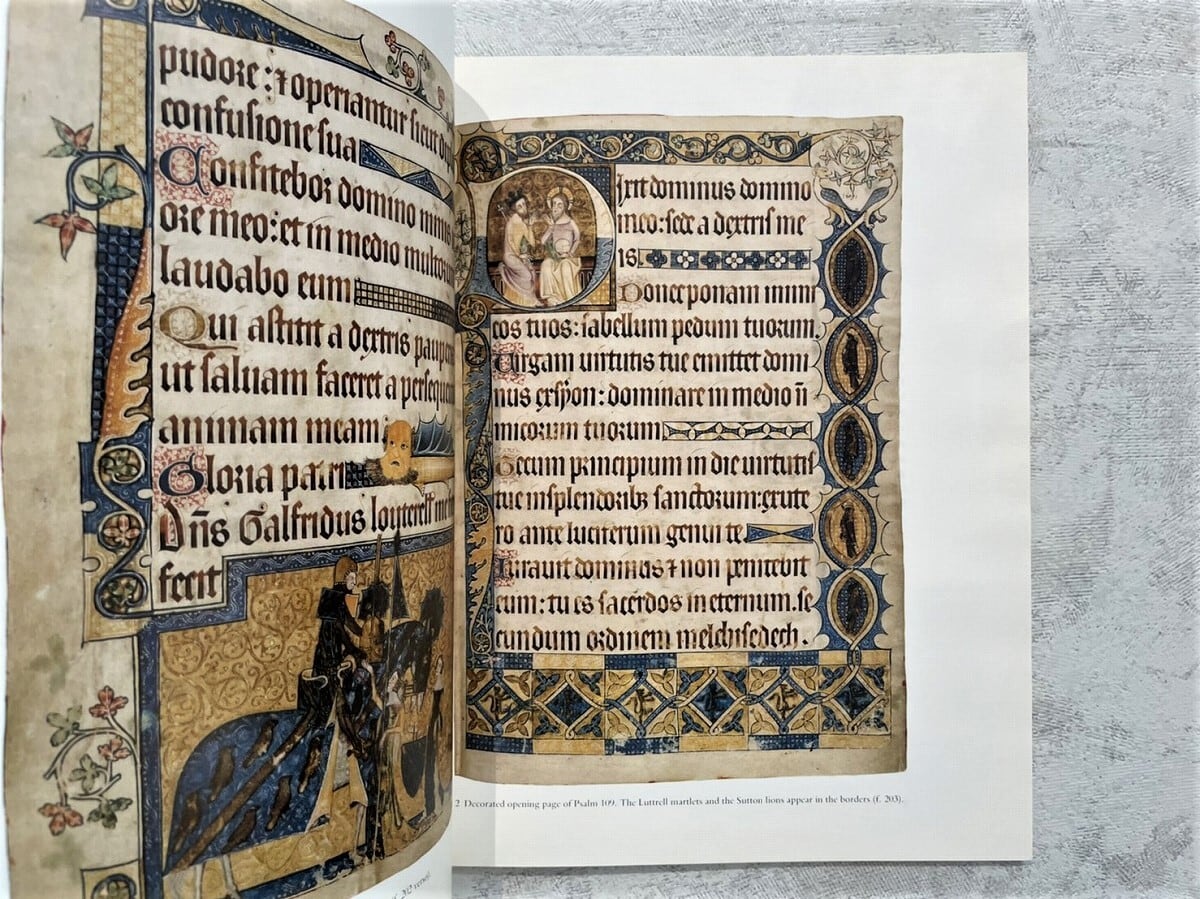 pudore : ⁊ operiantur sicut
confusione sua
Confitebor domino nimis
ore meo : et in medio multorum
laudabo eum
Qui astitit a dextris pauperis
ut saluam faceret a persequen
animam meam
Gloria patri
Dn̄s Galfridus louterell me
fecit
f. 202 verso
Dixit dominus domino
meo : sede a dextris me
is.
Donec ponam inimi
cos tuos : scabellum pedum tuorum.
Uirgam uirtutis tue emittet domi
nus ex syon : dominare in medio in̄
imicorum tuorum
Tecum principium in die uirtutis
tue in splendoribꝫ sanctorum : ex ute
ro ante luciferum genui te
Iurauit dominus ⁊ non penitebit
eum : tu es sacerdos in eternum. se
cundum ordinem melchisedech.
2 Decorated opening page of Psalm 109. The Luttrell martlets and the Sutton lions appear in the borders (f. 203).